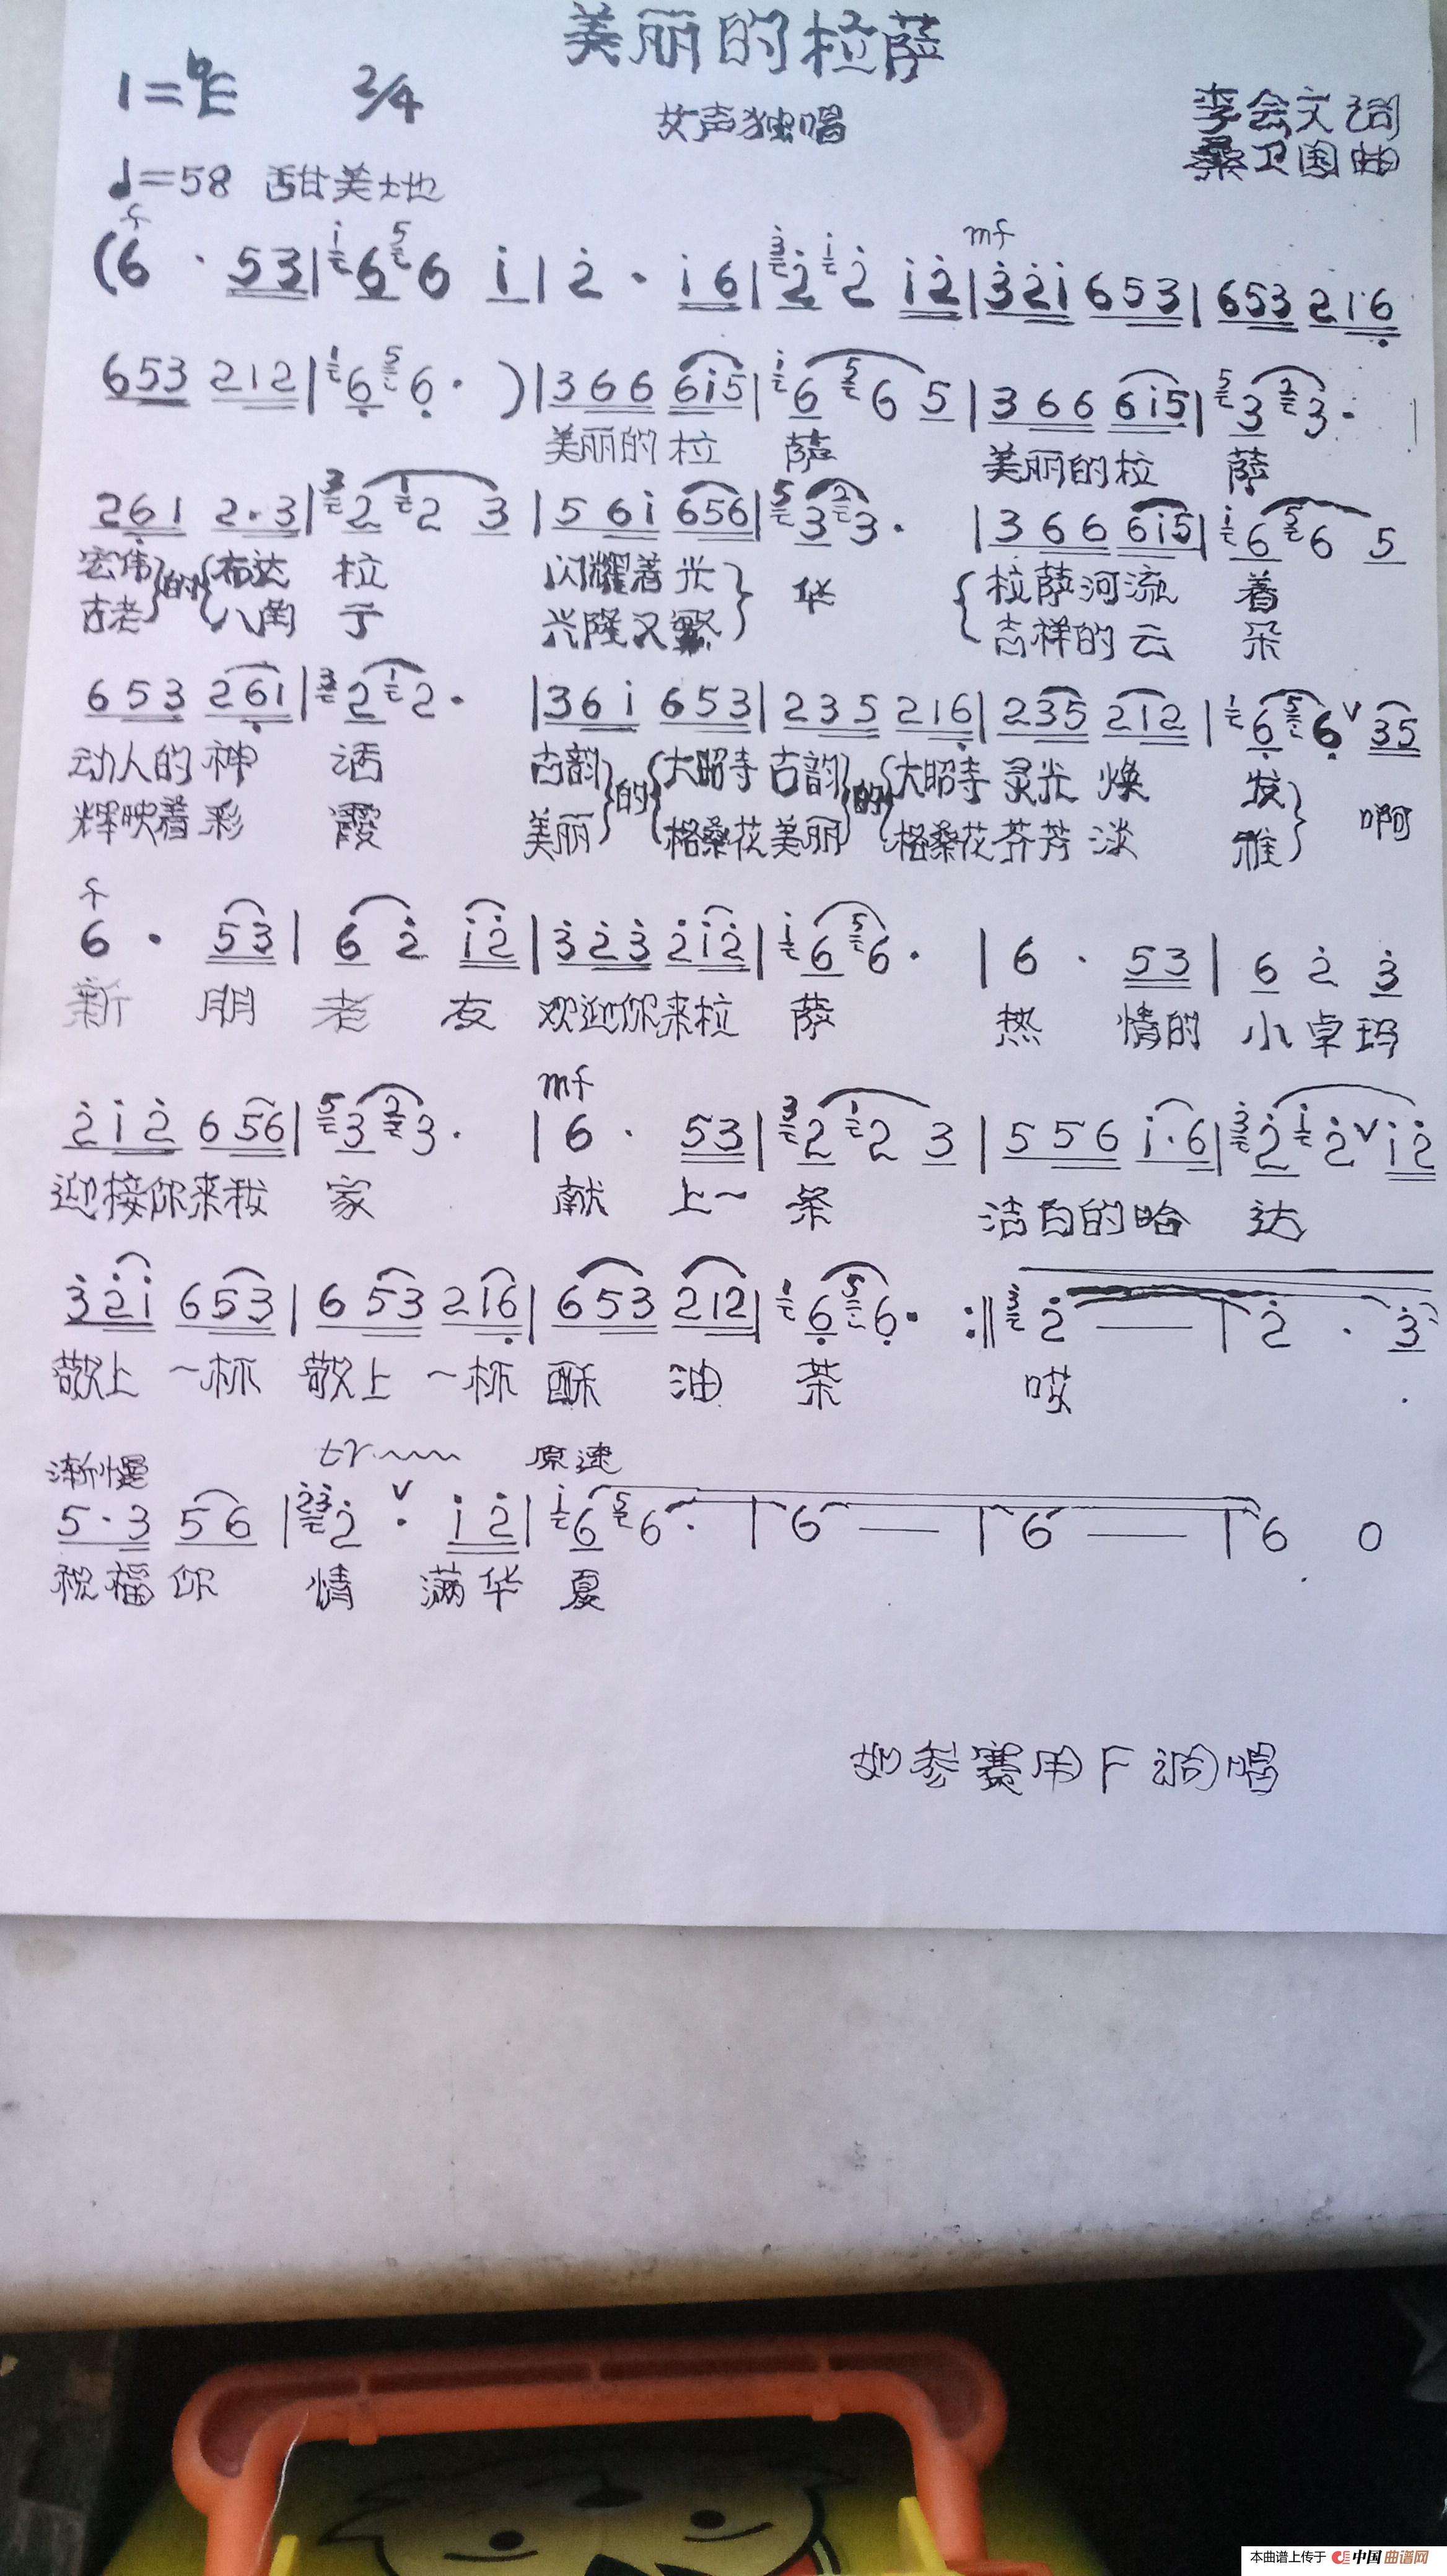 美丽的拉萨
1=♭E 2/4
女声独唱
李会文词
桑卫国曲
♩=58 甜美地
f mf
(6 · 53|6 6 i|2 · i6|2 2 i2|32i 653|653 216
653 212|6 6 · )|366 6i5|6 6 5|366 6i5|3 3 ·
美丽的拉 萨 美丽的拉 萨
261 2·3|2 2 3|56i 656|3 3 · |366 6i5|6 6 5
宏伟 的 布达 拉 闪耀着光 华 拉萨河流 着
古老 八角 于 兴隆又繁 吉祥的云 朵
653 261|2 2 · |36i 653|235 216|235 212|6 6 V 35
动人的神 话 古韵 的 大昭寺古韵 的 大昭寺灵光焕 发
辉映着彩 霞 美丽 格桑花美丽 格桑花芬芳淡 雅 啊
f
6 · 53|6 2 i2|323 2i2|6 6 · |6 · 53|6 2 3
新 朋 老 友 欢迎你来拉 萨 热 情的 小卓玛
mf
2i2 656|3 3 · |6 · 53|2 2 3|556 i·6|2 2 V i2
迎接你来我 家 献 上一 条 洁白的哈 达
32i 653|653 216|653 212|6 6 · :‖2 — |2 · 3
敬上 一杯 敬上 一杯 酥 油 茶 哎
渐慢 tr 原速
5·3 56|2 V · i2|6 6 · |6 — |6 — |6 0
祝福你 情 满华 夏
如参赛用F调唱
本曲谱上传于 中国曲谱网